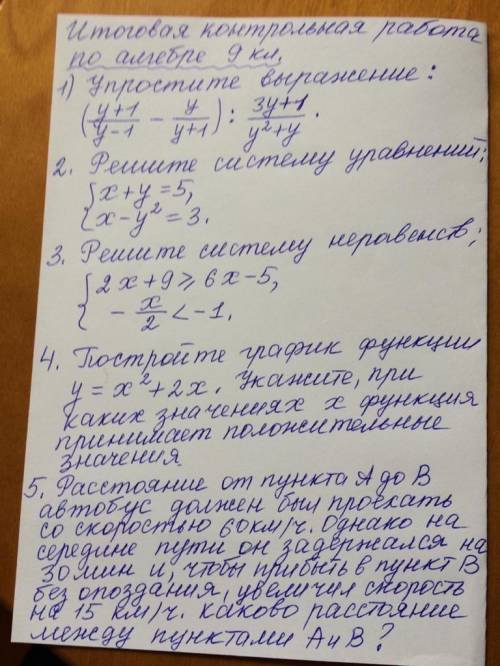 Итоговая контрольная работа
по алгебре 9 кл.
1) Упростите выражение:
(y+1/y-1 - y/y+1) : 3y+1/y²+y.
2. Решите систему уравнений:
{x+y=5,
x-y²=3.
3. Решите систему неравенств:
{2x+9≥6x-5,
-x/2<-1.
4. Постройте график функции
y=x²+2x. Укажите, при
каких значениях x функция
принимает положительные
значения.
5. Расстояние от пункта А до В
автобус должен был проехать
со скоростью 60км/ч. Однако на
середине пути он задержался на
30мин и, чтобы прибыть в пункт В
без опоздания, увеличил скорость
на 15 км/ч. Каково расстояние
между пунктами А и В?